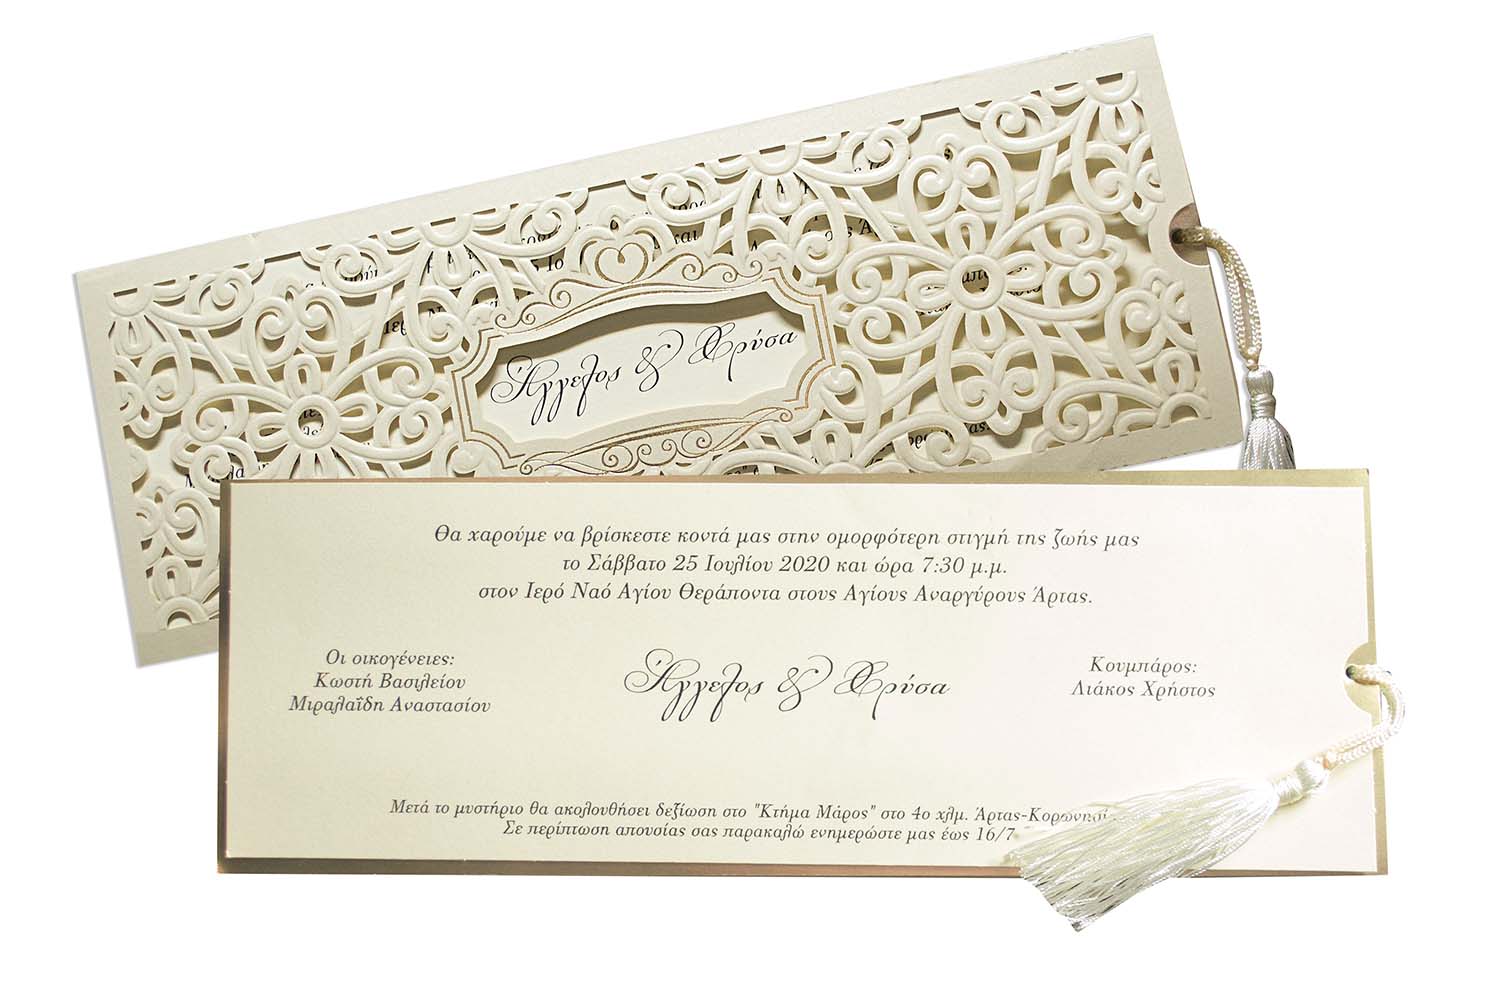 Άγγελος & Χρύσα
Θα χαρούμε να βρίσκεστε κοντά μας στην ομορφότερη στιγμή της ζωής μας
το Σάββατο 25 Ιουλίου 2020 και ώρα 7:30 μ.μ.
στον Ιερό Ναό Αγίου Θεράποντα στους Αγίους Αναργύρους Άρτας.
Οι οικογένειες:
Κωστή Βασιλείου
Μιραλαΐδη Αναστασίου
Άγγελος & Χρύσα
Κουμπάρος:
Λιάκος Χρήστος
Μετά το μυστήριο θα ακολουθήσει δεξίωση στο "Κτήμα Μάρος" στο 4ο χλμ. Άρτας-Κορωνησί
Σε περίπτωση απουσίας σας παρακαλώ ενημερώστε μας έως 16/7